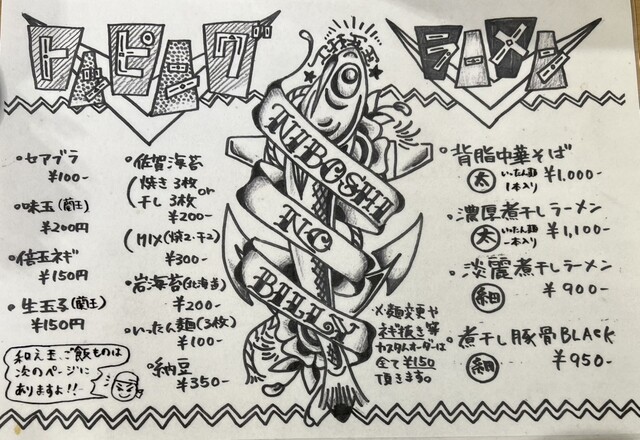 トッピング
・セアブラ
¥100-
・味玉(蘭王)
¥200円
・倍玉ネギ
¥150円
・生玉子(蘭王)
¥150円
和え玉、ご飯ものは
次のページに
ありますよ!!
・佐賀海苔
(焼き3枚
or
干し3枚
¥200-
(MIX(焼2・干2)
¥300-
・岩海苔(北海道)
¥200-
・いったん麺(3枚)
¥100-
・納豆
¥350-
NIBOSHI
NC
BILLY
ラーメン
・背脂中華そば
太 いったん麺1本入り ¥1,000-
・濃厚煮干しラーメン
太 いったん麺一本入り ¥1,100-
・淡麗煮干しラーメン
細 ¥900-
・煮干し豚骨BLACK
細 ¥950-
※麺変更や
ネギ抜き等
カスタムオーダーは
全て¥150
頂きます。